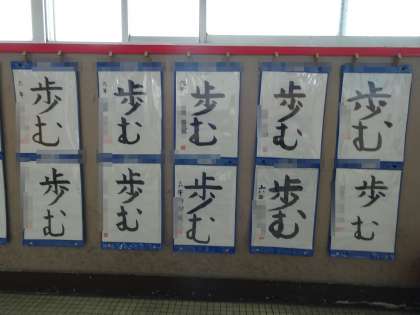 歩む
歩む
歩む
歩む
歩む
歩む
歩む
歩む
歩む
歩む